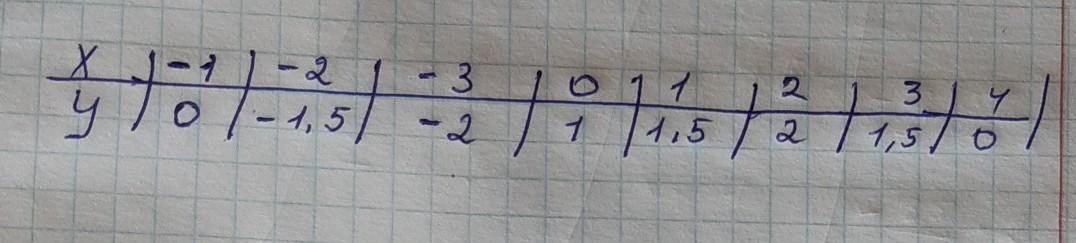 x | -1 | -2 | -3 | 0 | 1 | 2 | 3 | 4
y | 0 | -1,5 | -2 | 1 | 1,5 | 2 | 1,5 | 0